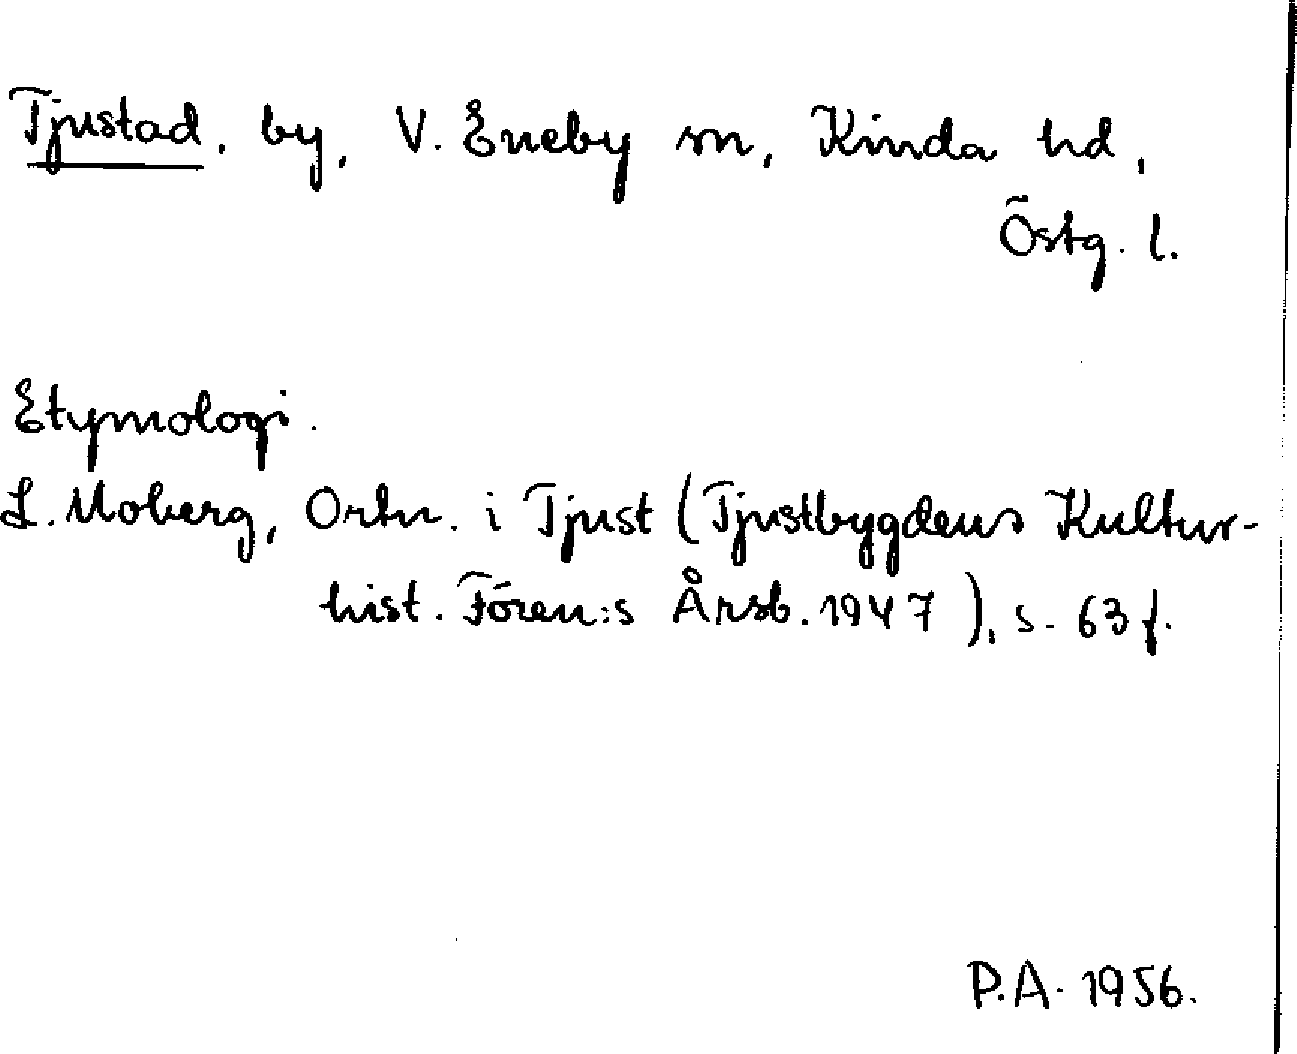 Tjustad, by, V. Eneby sn, Kinda hd,
Östg. l.
Etymologi.
L. Moberg, Ortn. i Tjust (Tjustbygdens Kultur-
hist. Fören:s Årsb. 1947), s. 63 f.
P.A. 1956.